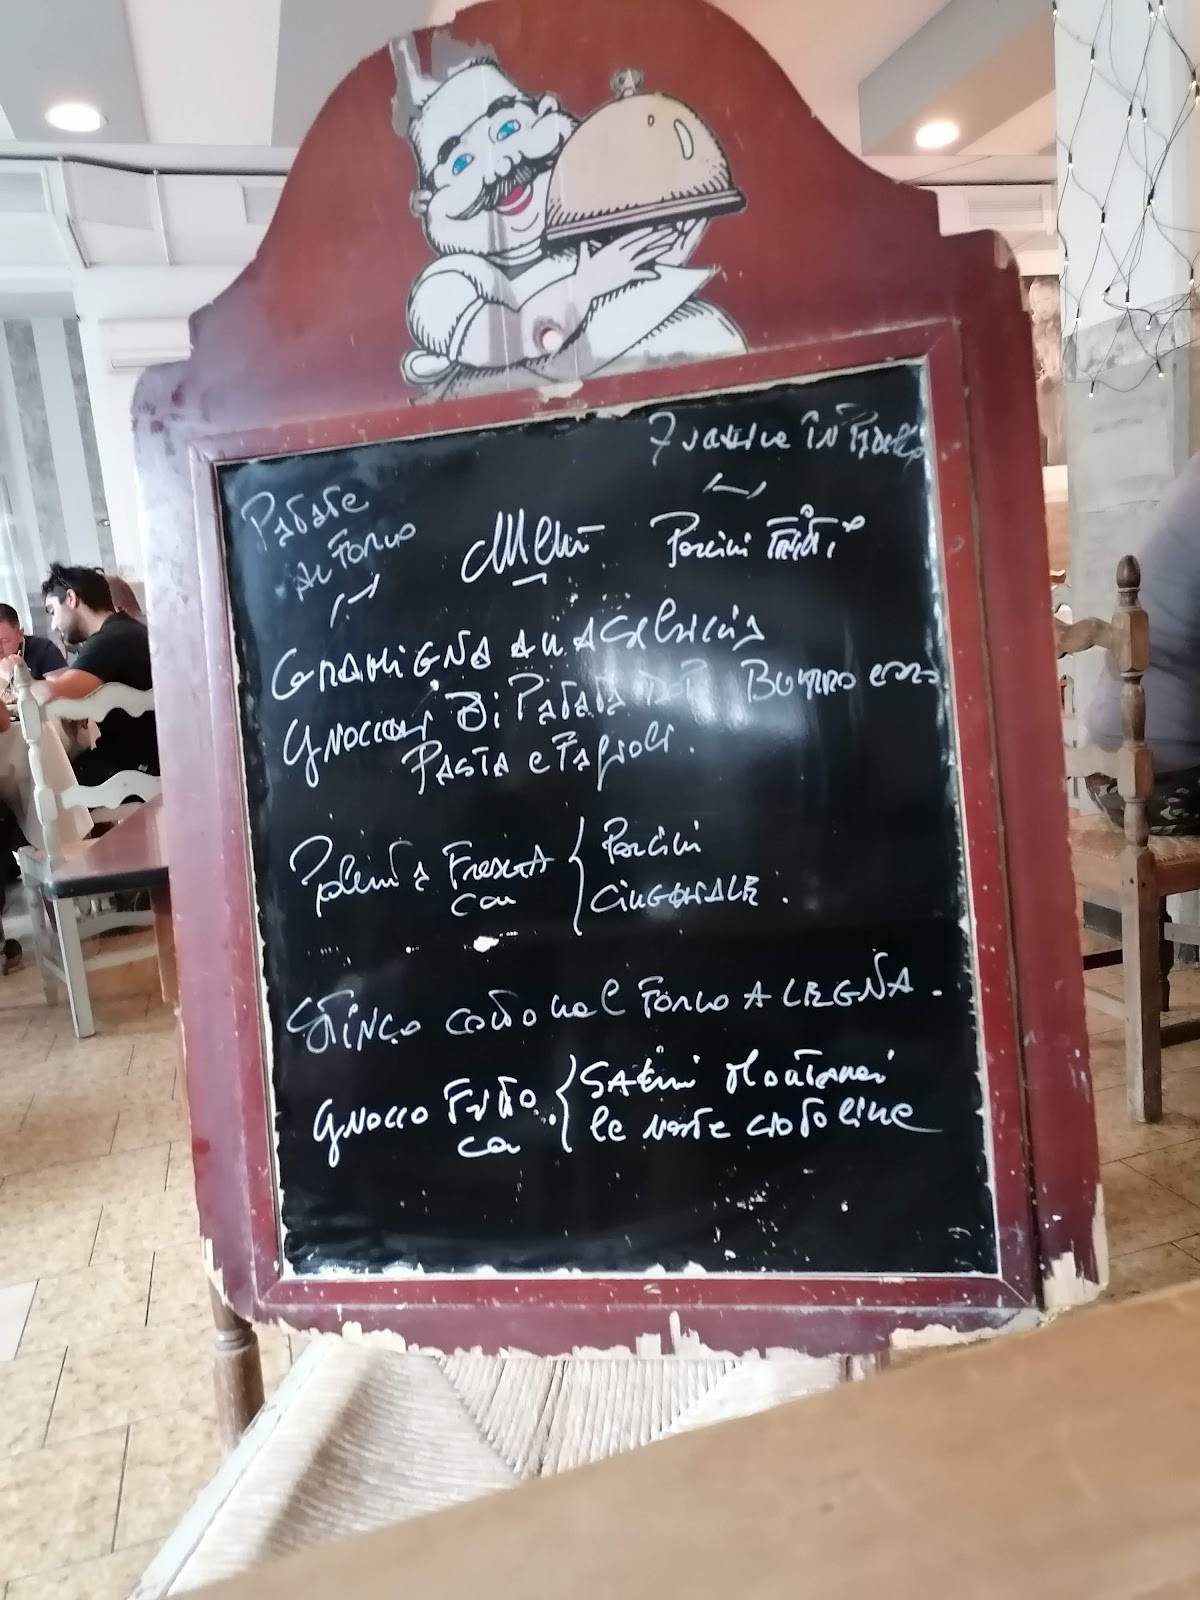 Patate
al Forno
Menù
Porcini Fritti
Gramigna alla Salsiccia
Gnocchi Di Patata Burro e oro
Pasta e Fagioli.
Polenta Fresca con
Porcini
Cinghiale.
Stinco cotto nel Forno A LEGNA.
Gnocco Fritto con
Salumi Montanari
le nostre crotoline